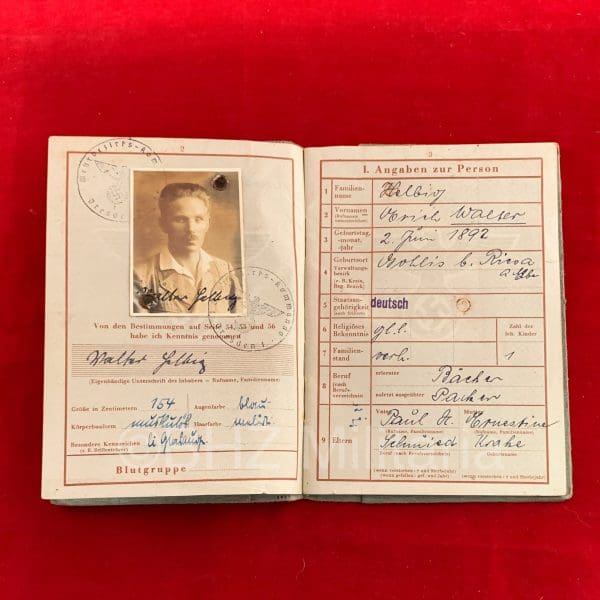 2
Walter Helbig
Von den Bestimmungen auf Seite 54, 55 und 56
habe ich Kenntnis genommen
Walter Helbig
(Eigenhändige Unterschrift des Inhabers – Rufname, Familienname)
Größe in Zentimetern 164 Augenfarbe blau
Körperbauform muskulös Haarfarbe
Besondere Kennzeichen
(z.B. Brillenträger)
Blutgruppe
3
I. Angaben zur Person
1 Familien-
name Helbig
2 Vornamen
(Rufnamen
unterstreichen) Erich Walter
3 Geburtstag,
-monat,
-jahr 2. Juni 1892
4 Geburtsort
Verwaltungs-
bezirk
(z. B. Kreis,
Reg. Bezirk) Gohlis b. Riesa
a. Elbe
5 Staatsan-
gehörigkeit
(auch frühere) deutsch
6 Religiöses
Bekenntnis ggl. Zahl der
leb. Kinder
7 Familien-
stand verh. 1
8 Beruf
(nach
Berufs-
verzeichnis) erlernter Bäcker
zuletzt ausgeübter Packer
9 Eltern
Vater Paul A. Mutter Ernestine
(Rufname, Familienname) (Rufname, Familienname)
Schmied
Beruf (nach Berufsverzeichnis) Geburtsname
(wenn verstorben: † und Sterbejahr) (wenn verstorben: † und Sterbejahr)
(wenn gefallen: gef. und Jahr)